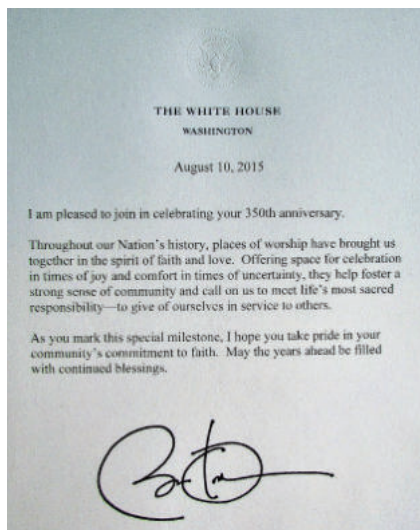 THE WHITE HOUSE
WASHINGTON
August 10, 2015
I am pleased to join in celebrating your 350th anniversary.
Throughout our Nation's history, places of worship have brought us
together in the spirit of faith and love. Offering space for celebration
in times of joy and comfort in times of uncertainty, they help foster a
strong sense of community and call on us to meet life's most sacred
responsibility—to give of ourselves in service to others.
As you mark this special milestone, I hope you take pride in your
community's commitment to faith. May the years ahead be filled
with continued blessings.